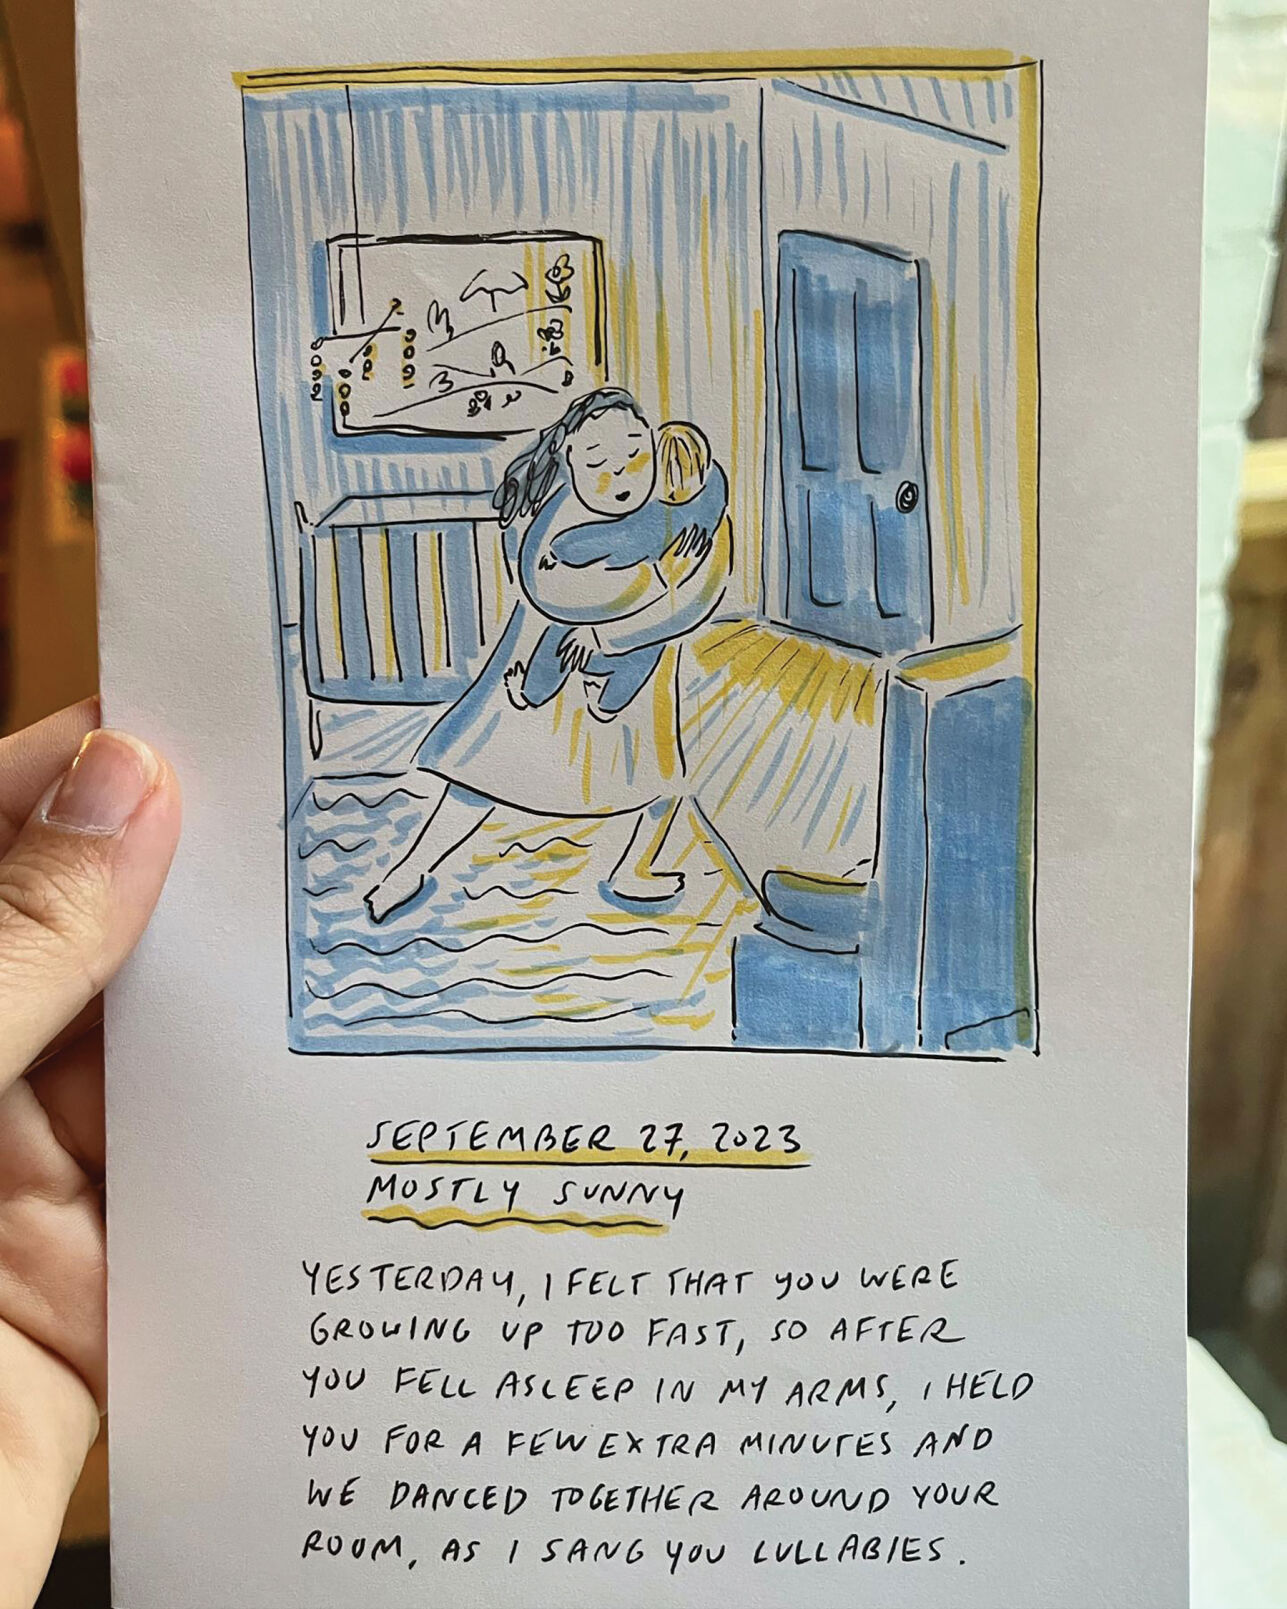 SEPTEMBER 27, 2023
MOSTLY SUNNY
YESTERDAY, I FELT THAT YOU WERE
GROWING UP TOO FAST, SO AFTER
YOU FELL ASLEEP IN MY ARMS, I HELD
YOU FOR A FEW EXTRA MINUTES AND
WE DANCED TOGETHER AROUND YOUR
ROOM, AS I SANG YOU LULLABIES.